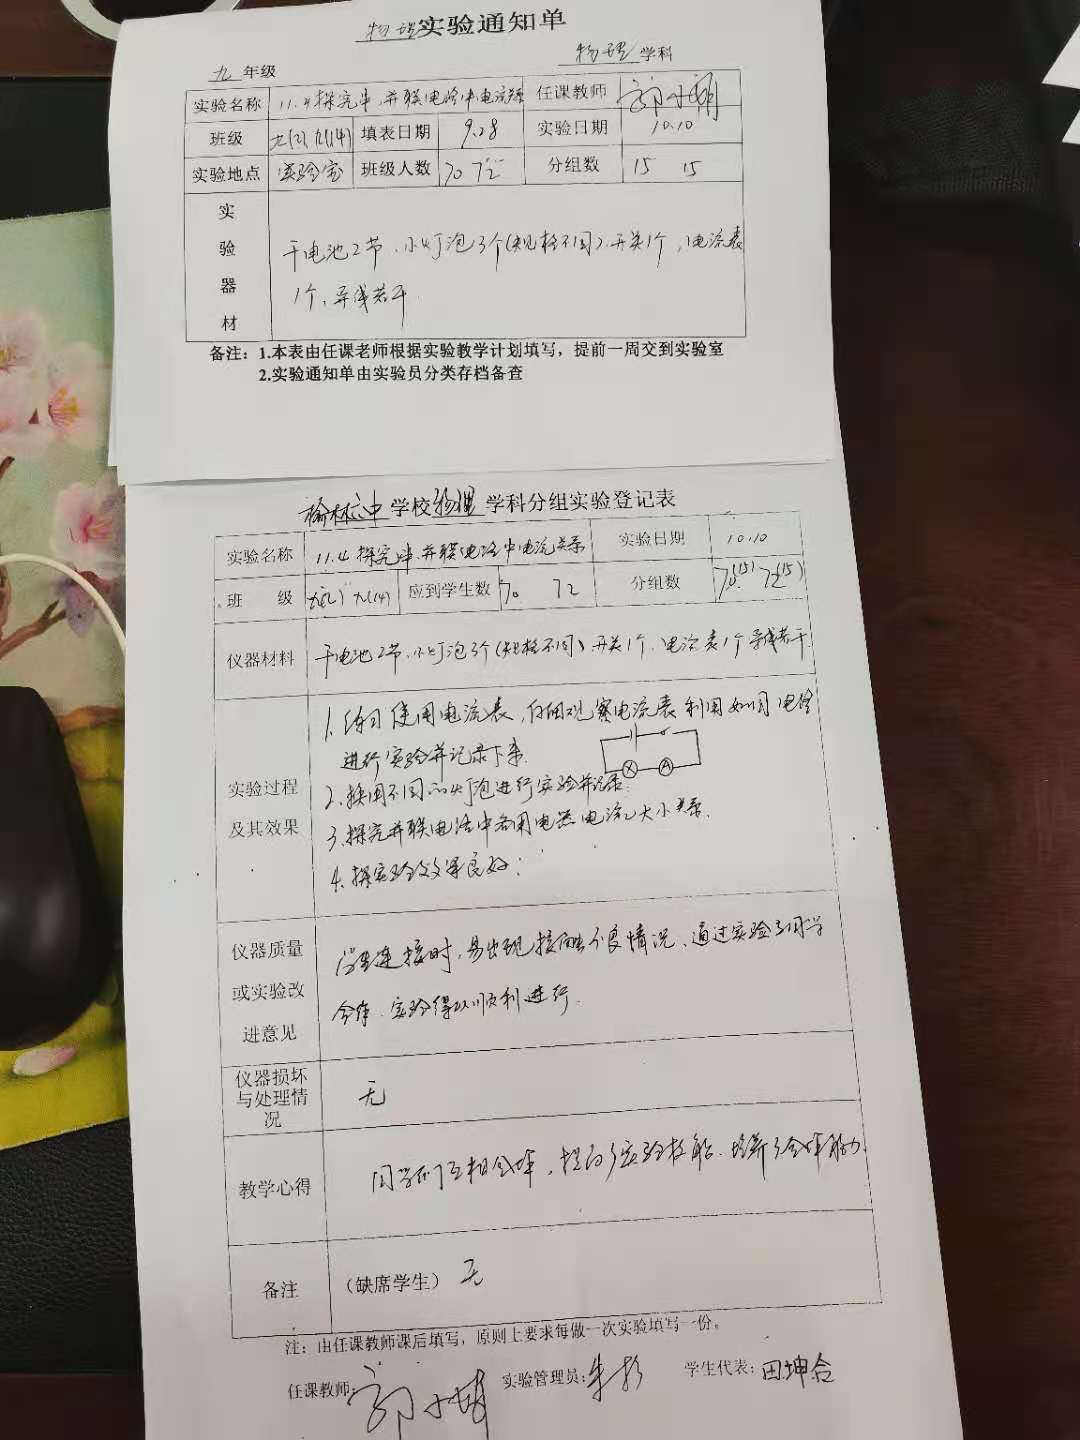 物理实验通知单
九 年级 物理 学科
实验名称 11.4探究串、并联电路中电流 任课教师 郭
班级 九(2) 九(14) 填表日期 9.28 实验日期 10.10
实验地点 实验室 班级人数 70 72 分组数 15 15
实验器材 干电池2节、小灯泡3个(规格不同)、开关1个,电流表
1个、导线若干
备注：1.本表由任课老师根据实验教学计划填写，提前一周交到实验室
2.实验通知单由实验员分类存档备查
榆林 中 学校 物理 学科分组实验登记表
实验名称 11.4 探究串、并联电路中电流关系 实验日期 10.10
班 级 九(2) 九(14) 应到学生数 70 72 分组数 70(15) 72(15)
仪器材料 干电池2节、小灯泡3个(规格不同)、开关1个、电流表1个 导线若干
实验过程及其效果
1. 练习使用电流表,仔细观察电流表 利用如图电路
进行实验并记录下来.
A
2. 换用不同的灯泡进行实验并记录.
3. 探究并联电路中各用电器电流大小关系.
4. 探实验效果良好;
仪器质量或实验改进意见
连接时,易出现接触不良情况、通过实验 同学
合作、实验得以顺利进行.
仪器损坏与处理情况 无
教学心得 同学们互相合作,提高了实验技能、培养了合作能力.
备注 (缺席学生) 无
注：由任课教师课后填写，原则上要求每做一次实验填写一份。
任课教师: 郭 实验管理员: 朱 学生代表: 田坤合